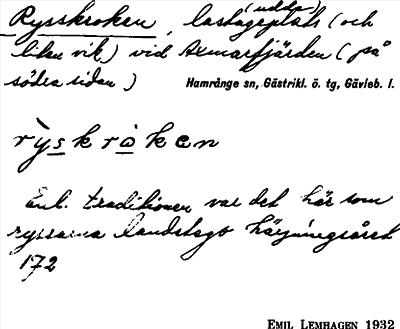 (udde)
Rysskroken, lastageplats (och
liten vik) vid Axmarfjärden (på
södra sidan)
Hamrånge sn, Gästrikl. ö. tg, Gävleb. l.
rỳskròken
Enl. traditionen var det här som
ryssarna landsteg härjningsåret
172
EMIL LEMHAGEN 1932